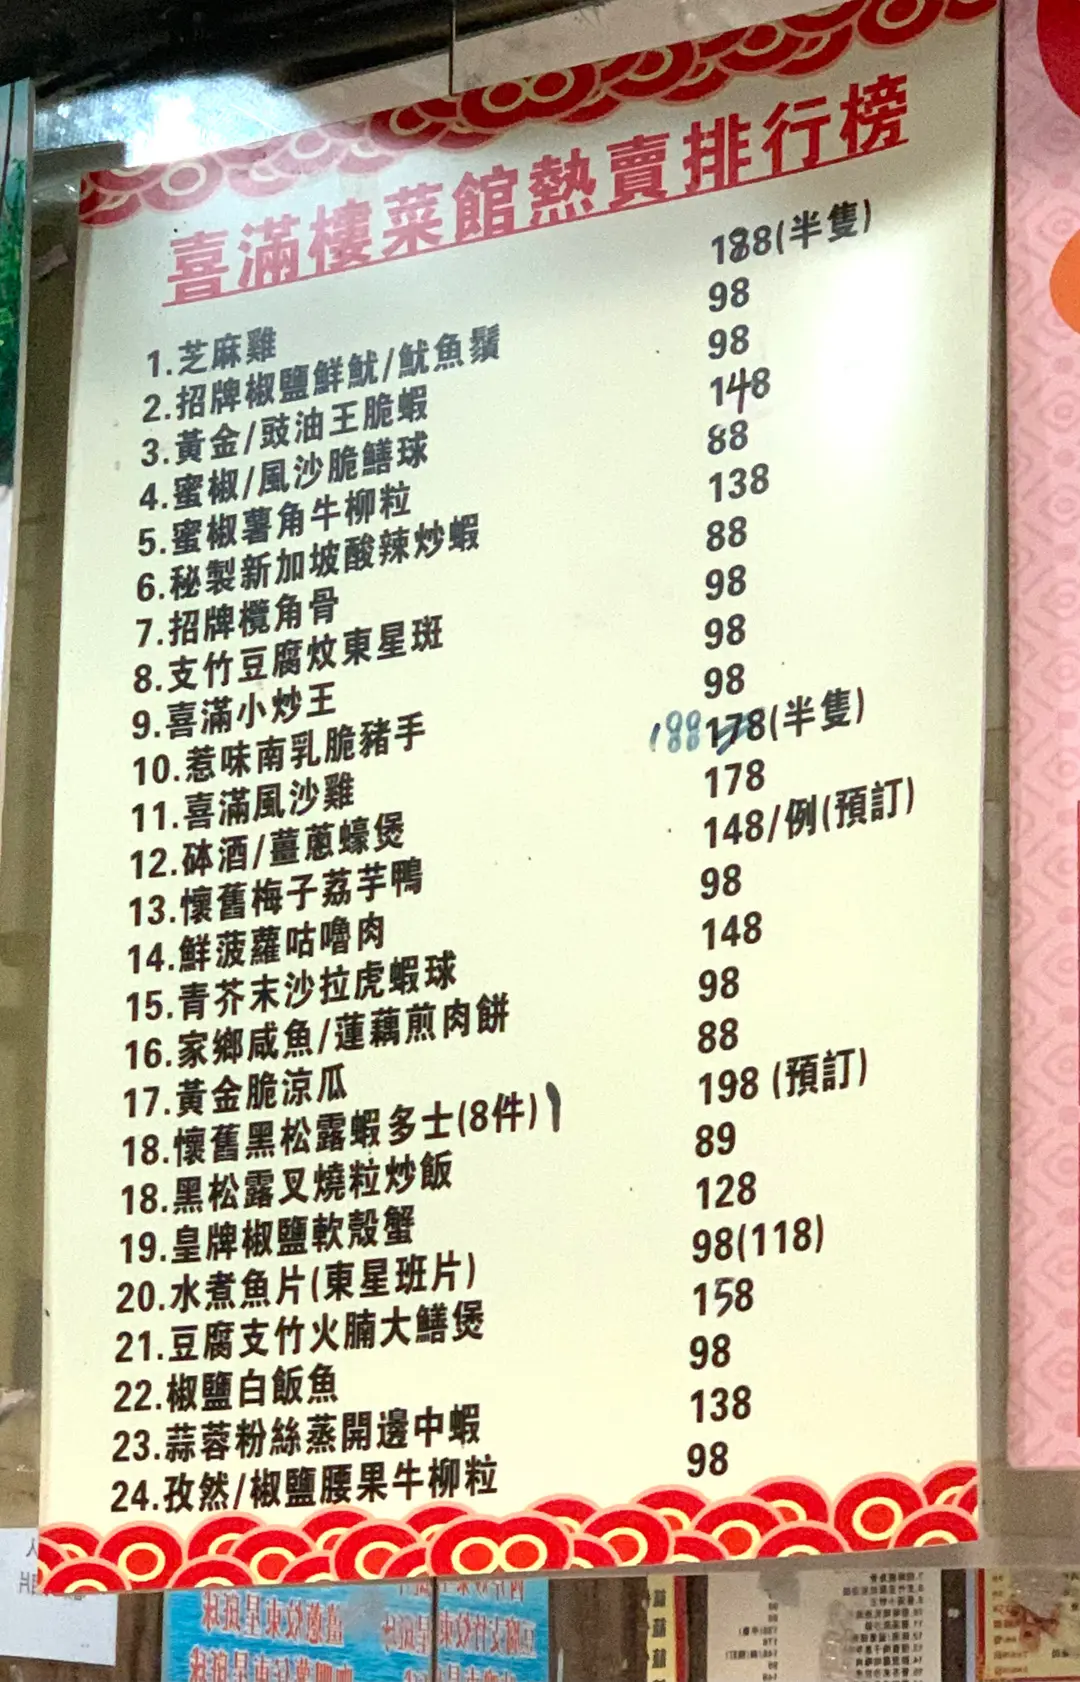 喜滿樓菜館熱賣排行榜
1.芝麻雞 188(半隻)
2.招牌椒鹽鮮魷/魷魚鬚 98
3.黃金/豉油王脆蝦 98
4.蜜椒/風沙脆鱔球 148
5.蜜椒薯角牛柳粒 88
6.秘製新加坡酸辣炒蝦 138
7.招牌欖角骨 88
8.支竹豆腐炆東星斑 98
9.喜滿小炒王 98
10.惹味南乳脆豬手 98
11.喜滿風沙雞 188 178(半隻)
12.砵酒/薑蔥蠔煲 178
13.懷舊梅子荔芋鴨 148/例(預訂)
14.鮮菠蘿咕嚕肉 98
15.青芥末沙拉虎蝦球 148
16.家鄉咸魚/蓮藕煎肉餅 98
17.黃金脆涼瓜 88
18.懷舊黑松露蝦多士(8件) 198 (預訂)
18.黑松露叉燒粒炒飯 89
19.皇牌椒鹽軟殼蟹 128
20.水煮魚片(東星班片) 98(118)
21.豆腐支竹火腩大鱔煲 158
22.椒鹽白飯魚 98
23.蒜蓉粉絲蒸開邊中蝦 138
24.孜然/椒鹽腰果牛柳粒 98